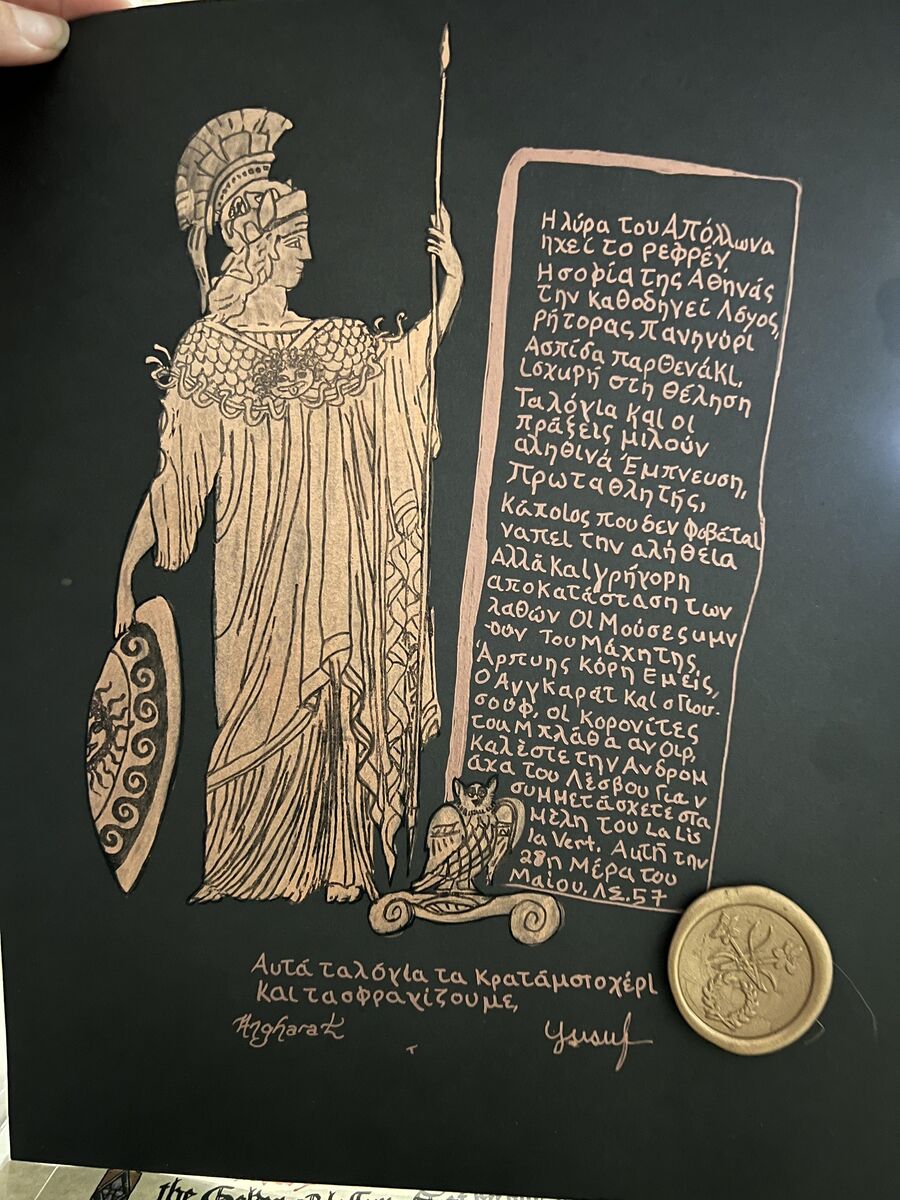 Η λύρα του Απόλλωνα
ηχεί το ρεφρέν,
Η σοφία της Αθηνάς
την καθοδηγεί Λόγος,
ρήτορας πανηγύρι
Ασπίδα παρθενάκι,
ισχυρή στη θέληση
Τα λόγια και οι
πράξεις μιλούν
αληθινά Έμπνευση,
Πρωταθλητής,
Κάποιος που δεν Φοβάται
να πει την αλήθεια
Αλλά και γρήγορη
αποκατάσταση των
λαθών Οι Μούσες υμν
-ούν Του Μάχητης,
Άρπυης Κόρη Εμείς,
Ο Ανγκαράτ και ο Γιου-
σούφ, οι Κορονίτες
του Μπλάθα αν Οιρ,
Καλέστε την Ανδρομ
άχα του Λέσβου Για ν
συμμετάσχετε στα
μέλη του La Lis
la Vert. Αυτή την
28η Μέρα του
Μαΐου, ΛΣ. 57
Αυτά τα λόγια τα κρατάμστοχέρι
και τα σφραγίζουμε,
Angharat
Yusuf